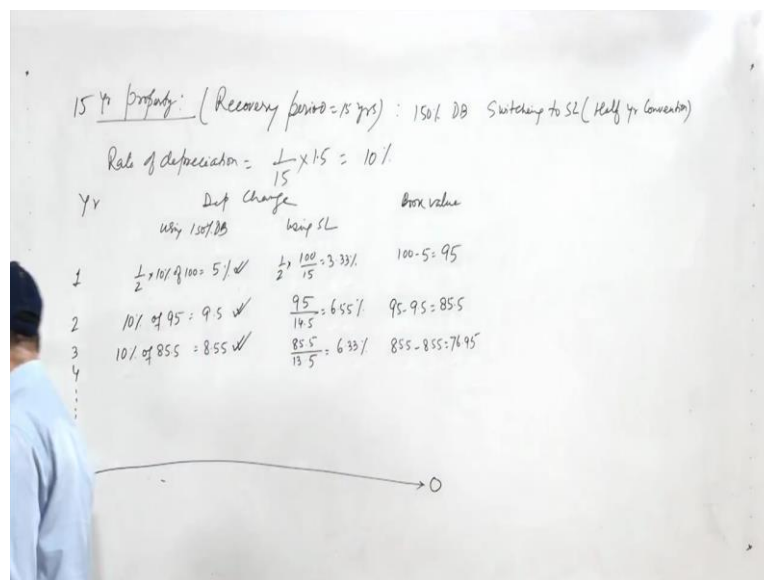 15 Yr property: (Recovery period = 15 yrs) : 150% DB Switching to SL (Half yr Convention)
Rate of depreciation = 1/15 × 1.5 = 10%
Yr Dep Charge Book value
using 150% DB using SL
1 1/2 × 10% of 100 = 5% ✓ 1/2 × 100/15 = 3.33% 100 - 5 = 95
2 10% of 95 = 9.5 ✓ 95/14.5 = 6.55% 95 - 9.5 = 85.5
3 10% of 85.5 = 8.55 ✓ 85.5/13.5 = 6.33% 85.5 - 8.55 = 76.95
4
0